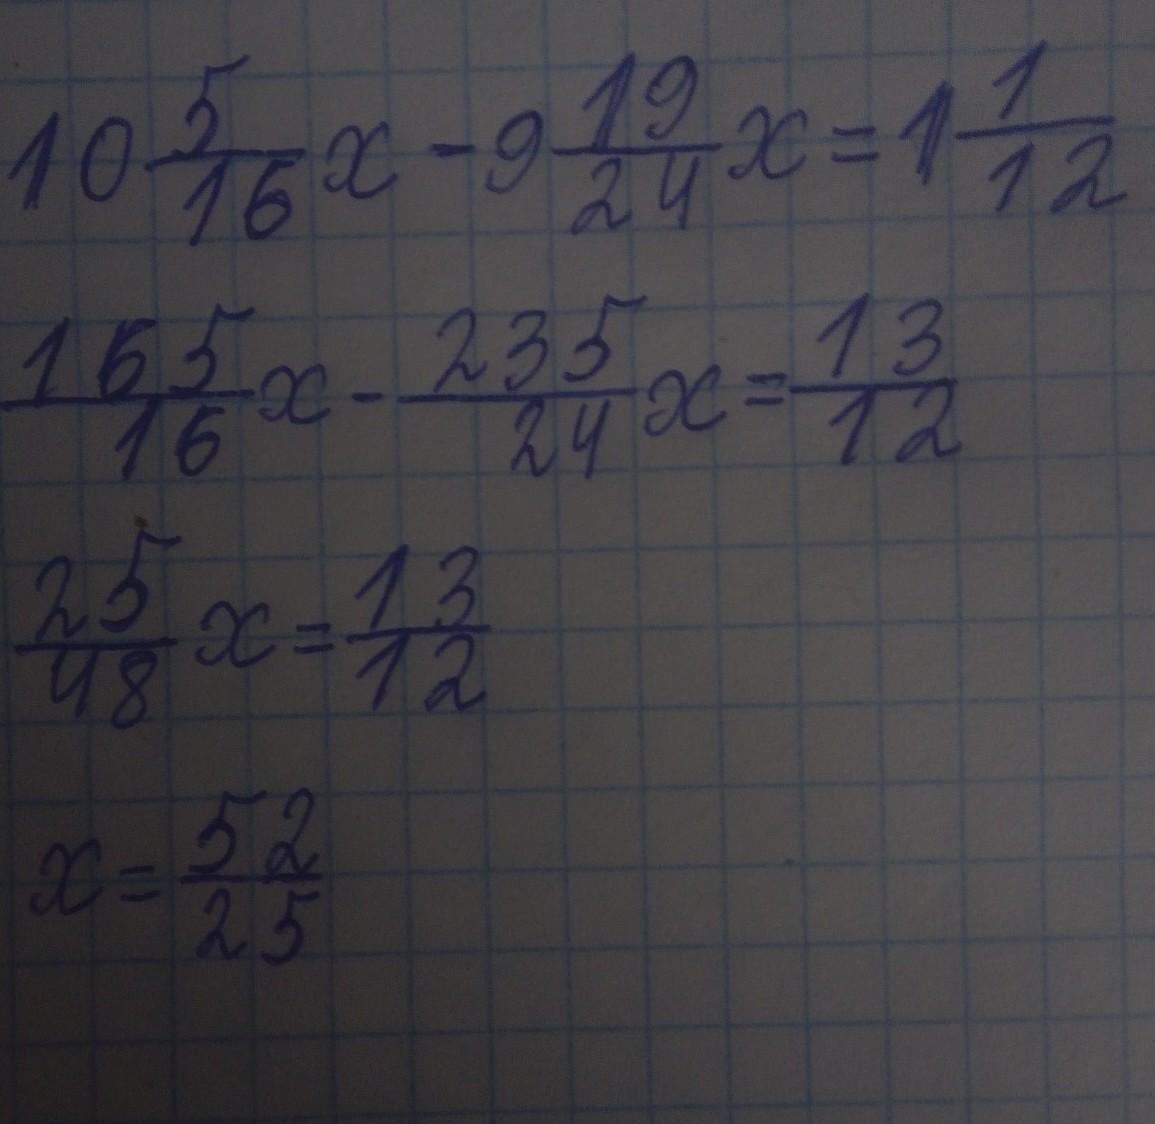 10 5/16 x - 9 19/24 x = 1 1/12
165/16 x - 235/24 x = 13/12
25/48 x = 13/12
x = 52/25